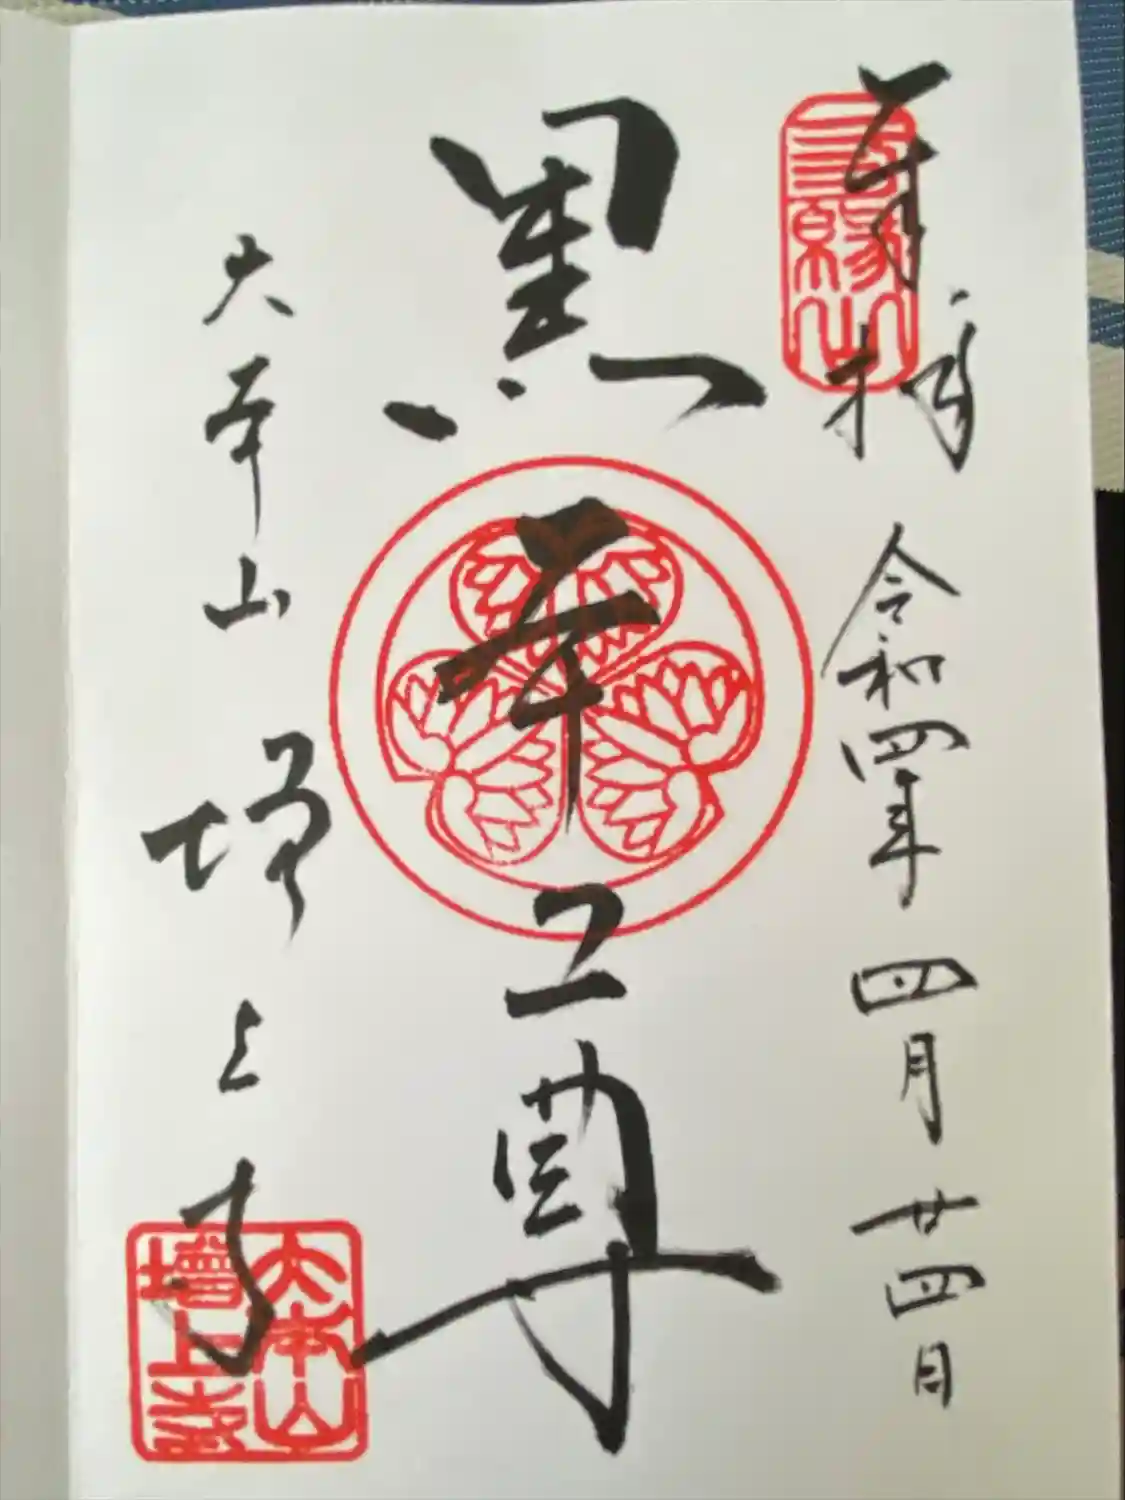 奉拝 令和四年 四月 廿四日
三縁山
黒本尊
大本山 増上寺
大本山
増上寺